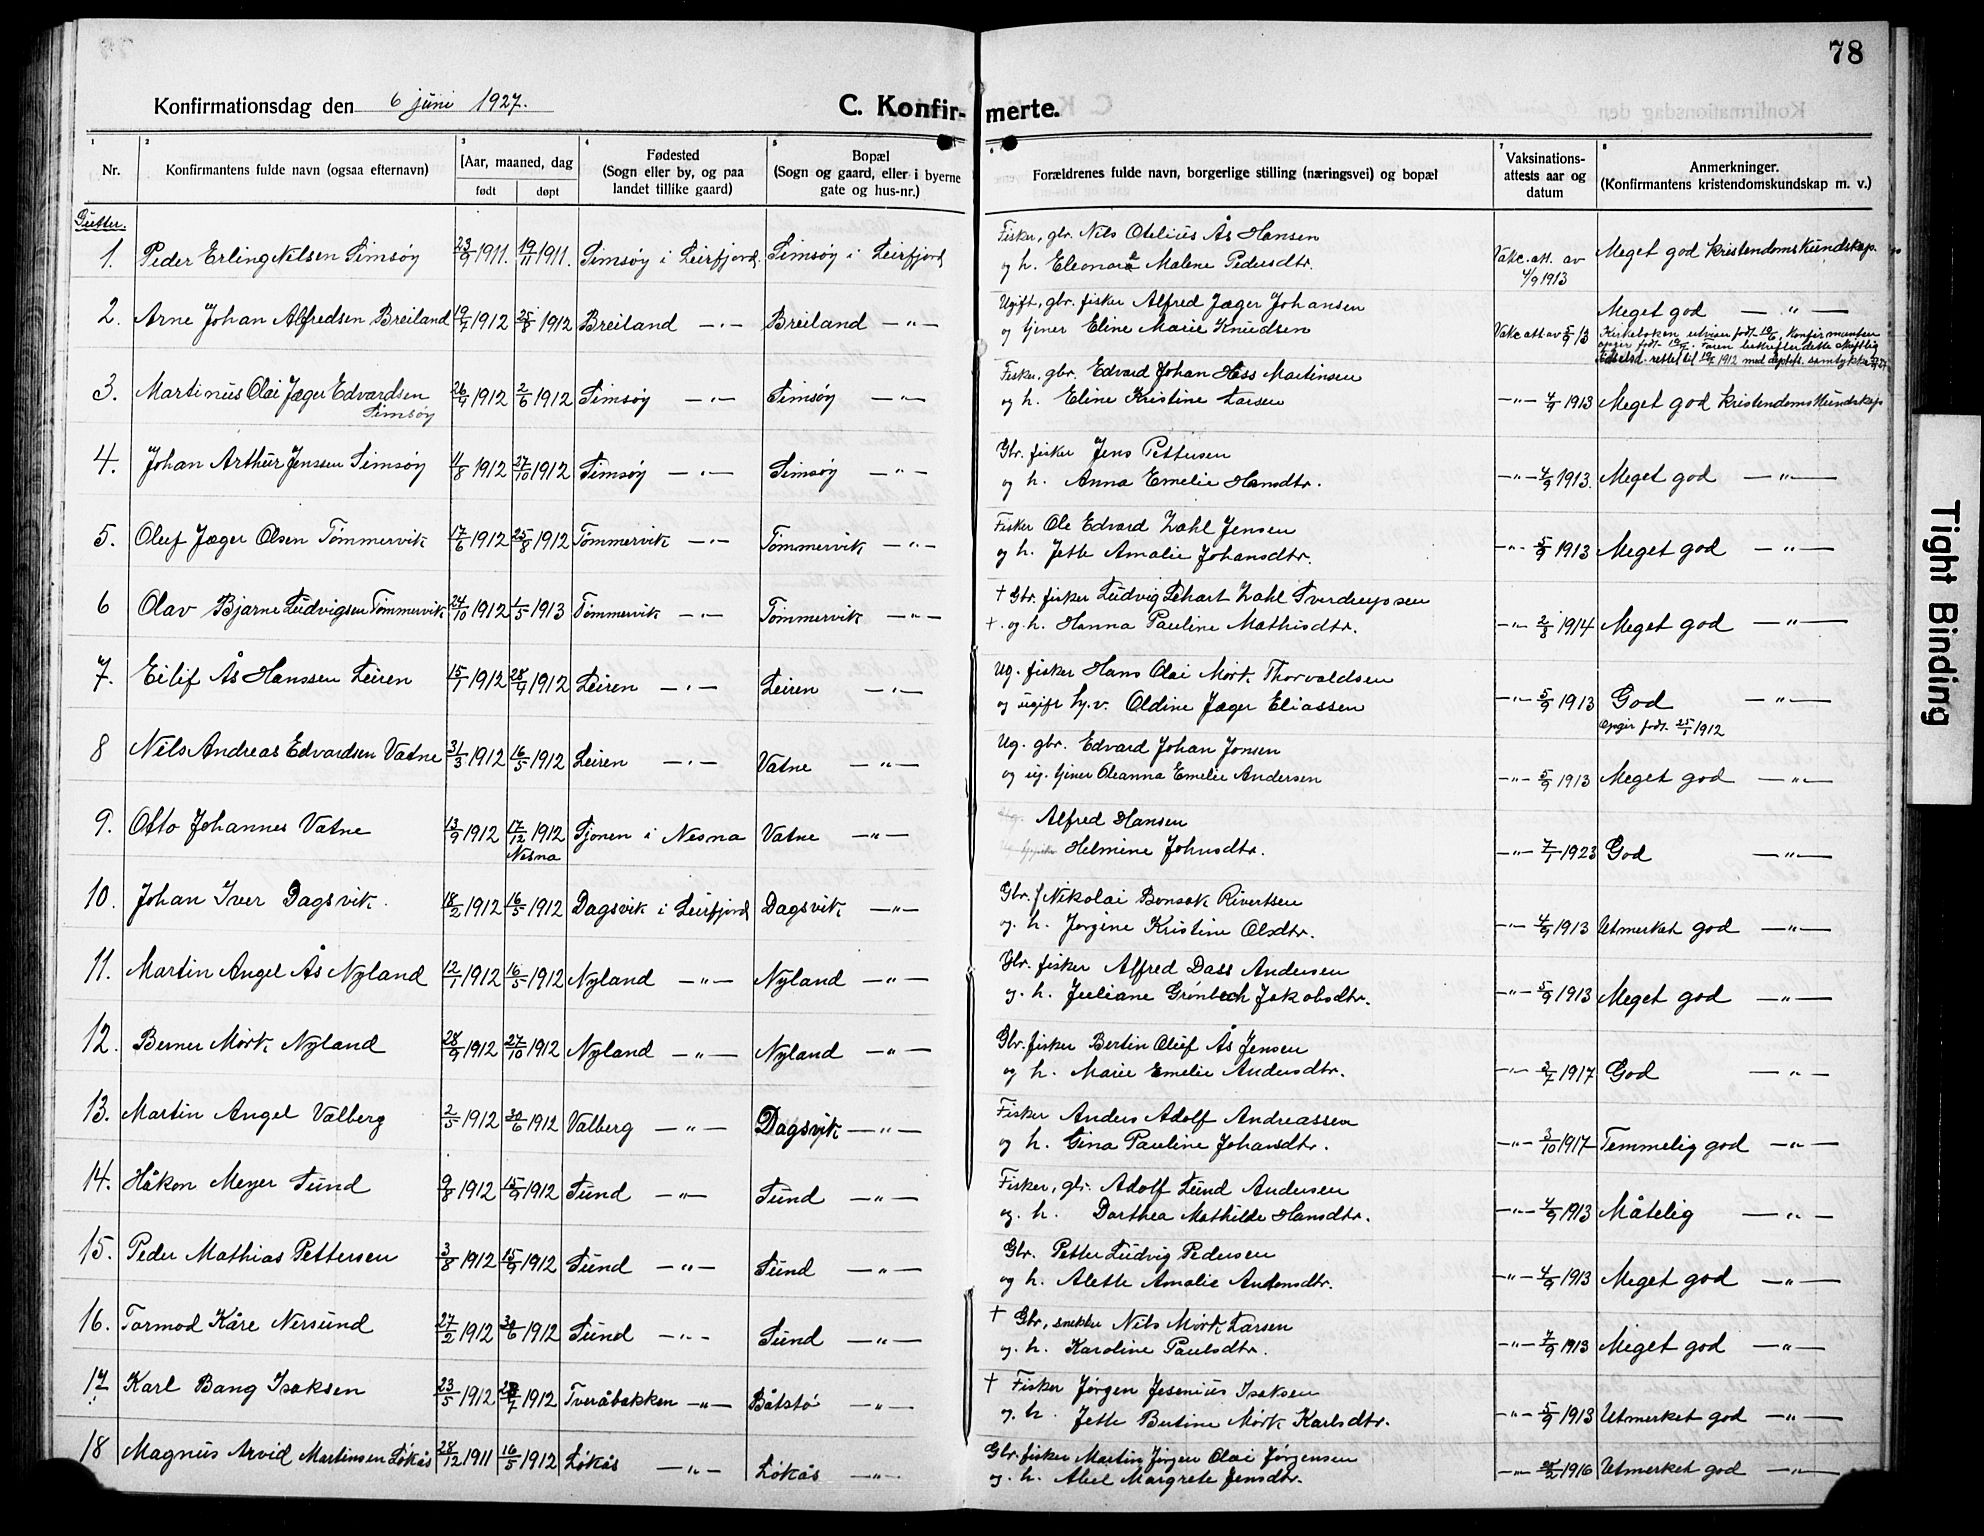 78
Konfirmationsdag den 6 juni 1927.
C. Konfir-merte.
Nr.
Konfirmantens fulde navn (ogsaa efternavn)
Aar, maaned, dag
født
døpt
Fødested
(Sogn eller by, og paa
landet tillike gaard)
Bopæl
(Sogn og gaard, eller i byerne
gate og hus-nr.)
Forældrenes fulde navn, borgerlige stilling (næringsvei) og bopæl
Vaksinations-
attests aar og
datum
Anmerkninger.
(Konfirmantens kristendomskundskap m. v.)
Gutter.
1. Peder Erling Nilsen Simsøy 23/9 1911. 19/11 1911. Simsøy i Leirfjord. Simsøy i Leirfjord
Fisker, gbr. Nils Otelius Ås Hansen
og h. Eleonora Malene Pedersdtr.
Vakc. att. av 4/9 1913
Meget god kristendomskundskap.
2. Arne Johan Alfredsen Breiland 19/7 1912 25/8 1912 Breiland —"— Breiland —"—
Ugift, gbr. fisker Alfred Jæger Johansen
og tjener Eline Marie Knudsen
Vakc att av 5/9 13
Meget god —"—
3. Martinus Olai Jæger Edvardsen Simsøy 26/4 1912 2/6 1912 Simsøy —"— Simsøy —"—
Fisker, gbr. Edvard Johan Hess Martinsen
og h. Eline Kristine Larsen
—"— 4/9 1913 Meget god kristendomskundskap
4. Johan Arthur Jenssen Simsøy 11/8 1912 27/10 1912 Simsøy —"— Simsøy —"—
Gbr. fisker Jens Pettersen
og h. Anna Emelie Hansdtr.
—"— 4/9 1913. Meget god —"—
5. Oluf Jæger Olsen Tømmervik 17/6 1912 25/8 1912 Tømmervik —"— Tømmervik —"—
Fisker Ole Edvard Zahl Jensen
og h. Jette Amalie Johansdtr.
—"— 5/9 1913 Meget god —"—
6 Olav Bjarne Ludvigsen Tømmervik 24/10 1912 1/5 1913 Tømmervik —"— Tømmervik —"—
† Gbr. fisker Ludvig Zahl Sverdrupsen
+ og h. Hanna Pauline Mathisdtr.
—"— 2/8 1914 Meget god —"—
7. Eilif Ås Hanssen Leiren 15/1 1912 28/4 1912 Leiren —"— Leiren —"—
Ug. fisker Hans Olai Mørk Thorvaldsen
og ugift hj.v. Oldine Jæger Eliassen
—"— 5/9 1913 God —"—
Opgir født 25/1 1912
8 Nils Andreas Edvardsen Vatne 31/3 1912 16/5 1912 Leiren —"— Vatne —"—
Ug. gbr. Edvard Johan Jonsen
og ug. tjener Oleanna Emelie Andersen
—"— 5/9 1913 Meget god —"—
9. Otto Johannes Vatne 13/9 1912 17/12 1912 Nesna Sjonen i Nesna Vatne —"—
Alfred Hansen
Helmine Johnsdtr.
—"— 7/1 1923 God —"—
10. Johan Iver Dagsvik. 18/2 1912 16/5 1912 Dagsvik i Leirfjord Dagsvik —"—
Gbr. f Nikolai Bonsak Rivertsen
og h. Jørgine Kristine Olsdtr.
—"— 4/9 1913 Utmerket god —"—
11. Martin Angel Ås Nyland 12/1 1912 16/5 1912 Nyland —"— Nyland —"—
Gbr. fisker Alfred Dass Andersen
og. h. Juliane Grønbech Jakobsdtr.
—"— 5/9 1913 Meget god —"—
12. Berner Mørk Nyland 28/9 1912 27/10 1912 Nyland —"— Nyland —"—
Gbr. fisker Bertin Oluf Ås Jensen
og h. Marie Emelie Andersdtr.
—"— 2/7 1917 God —"—
13. Martin Angel Valberg 2/5 1912 30/6 1912 Valberg —"— Dagsvik —"—
Fisker Anders Adolf Andreassen
og h. Gina Pauline Johansdtr.
—"— 3/10 1917 Temmelig god —"—
14. Håkon Meyer Sund 9/8 1912 15/9 1912 Sund —"— Sund —"—
Fisker, gbr. Adolf Lund Andersen
og. h. Dorthea Mathilde Hansdtr.
—"— 4/9 1913 Måtelig —"—
15. Peder Mathias Pettersen 3/8 1912 15/9 1912 Sund —"— Sund —"—
Gbr. Petter Ludvig Pedersen
og h. Alette Amalie Antonsdtr.
—"— 4/9 1913 Meget god —"—
16. Tormod Kåre Nersund 27/2 1912 30/6 1912 Sund —"— Sund —"—
† Gbr, snekker Nils Mørk Larsen
og. h. Karoline Paulsdtr.
—"— 7/9 1913 Meget god —"—
17. Karl Bang Isaksen 23/5 1912 1912 Tveråbakken —"— Båtstø —"—
† Fisker Jørgen Jesenius Isaksen
og. h. Jette Bertine Mørk Karlsdtr.
—"— 5/9 1913 Utmerket god —"—
18 Magnus Arvid Martinsen Løkås 28/12 1911 16/5 1912 Løkås —"— Løkås —"—
Gbr. fisker Martin Jørgen Olai Jørgensen
og. h. Abel Margrete Jensdtr.
—"— 1916 Utmerket god —"—
Tight Binding